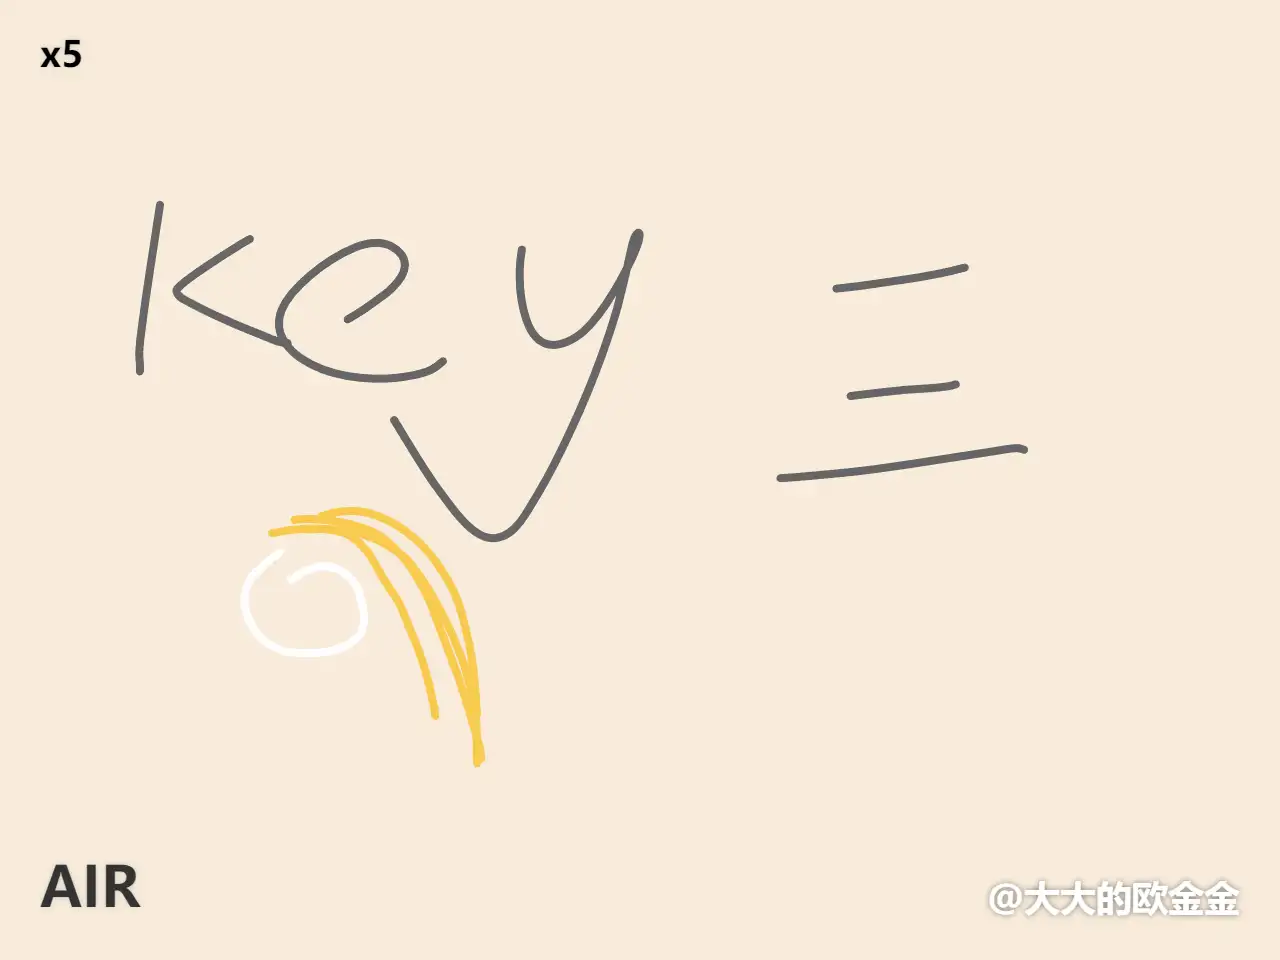 x5
Key 三
AIR
@大大的欧金金